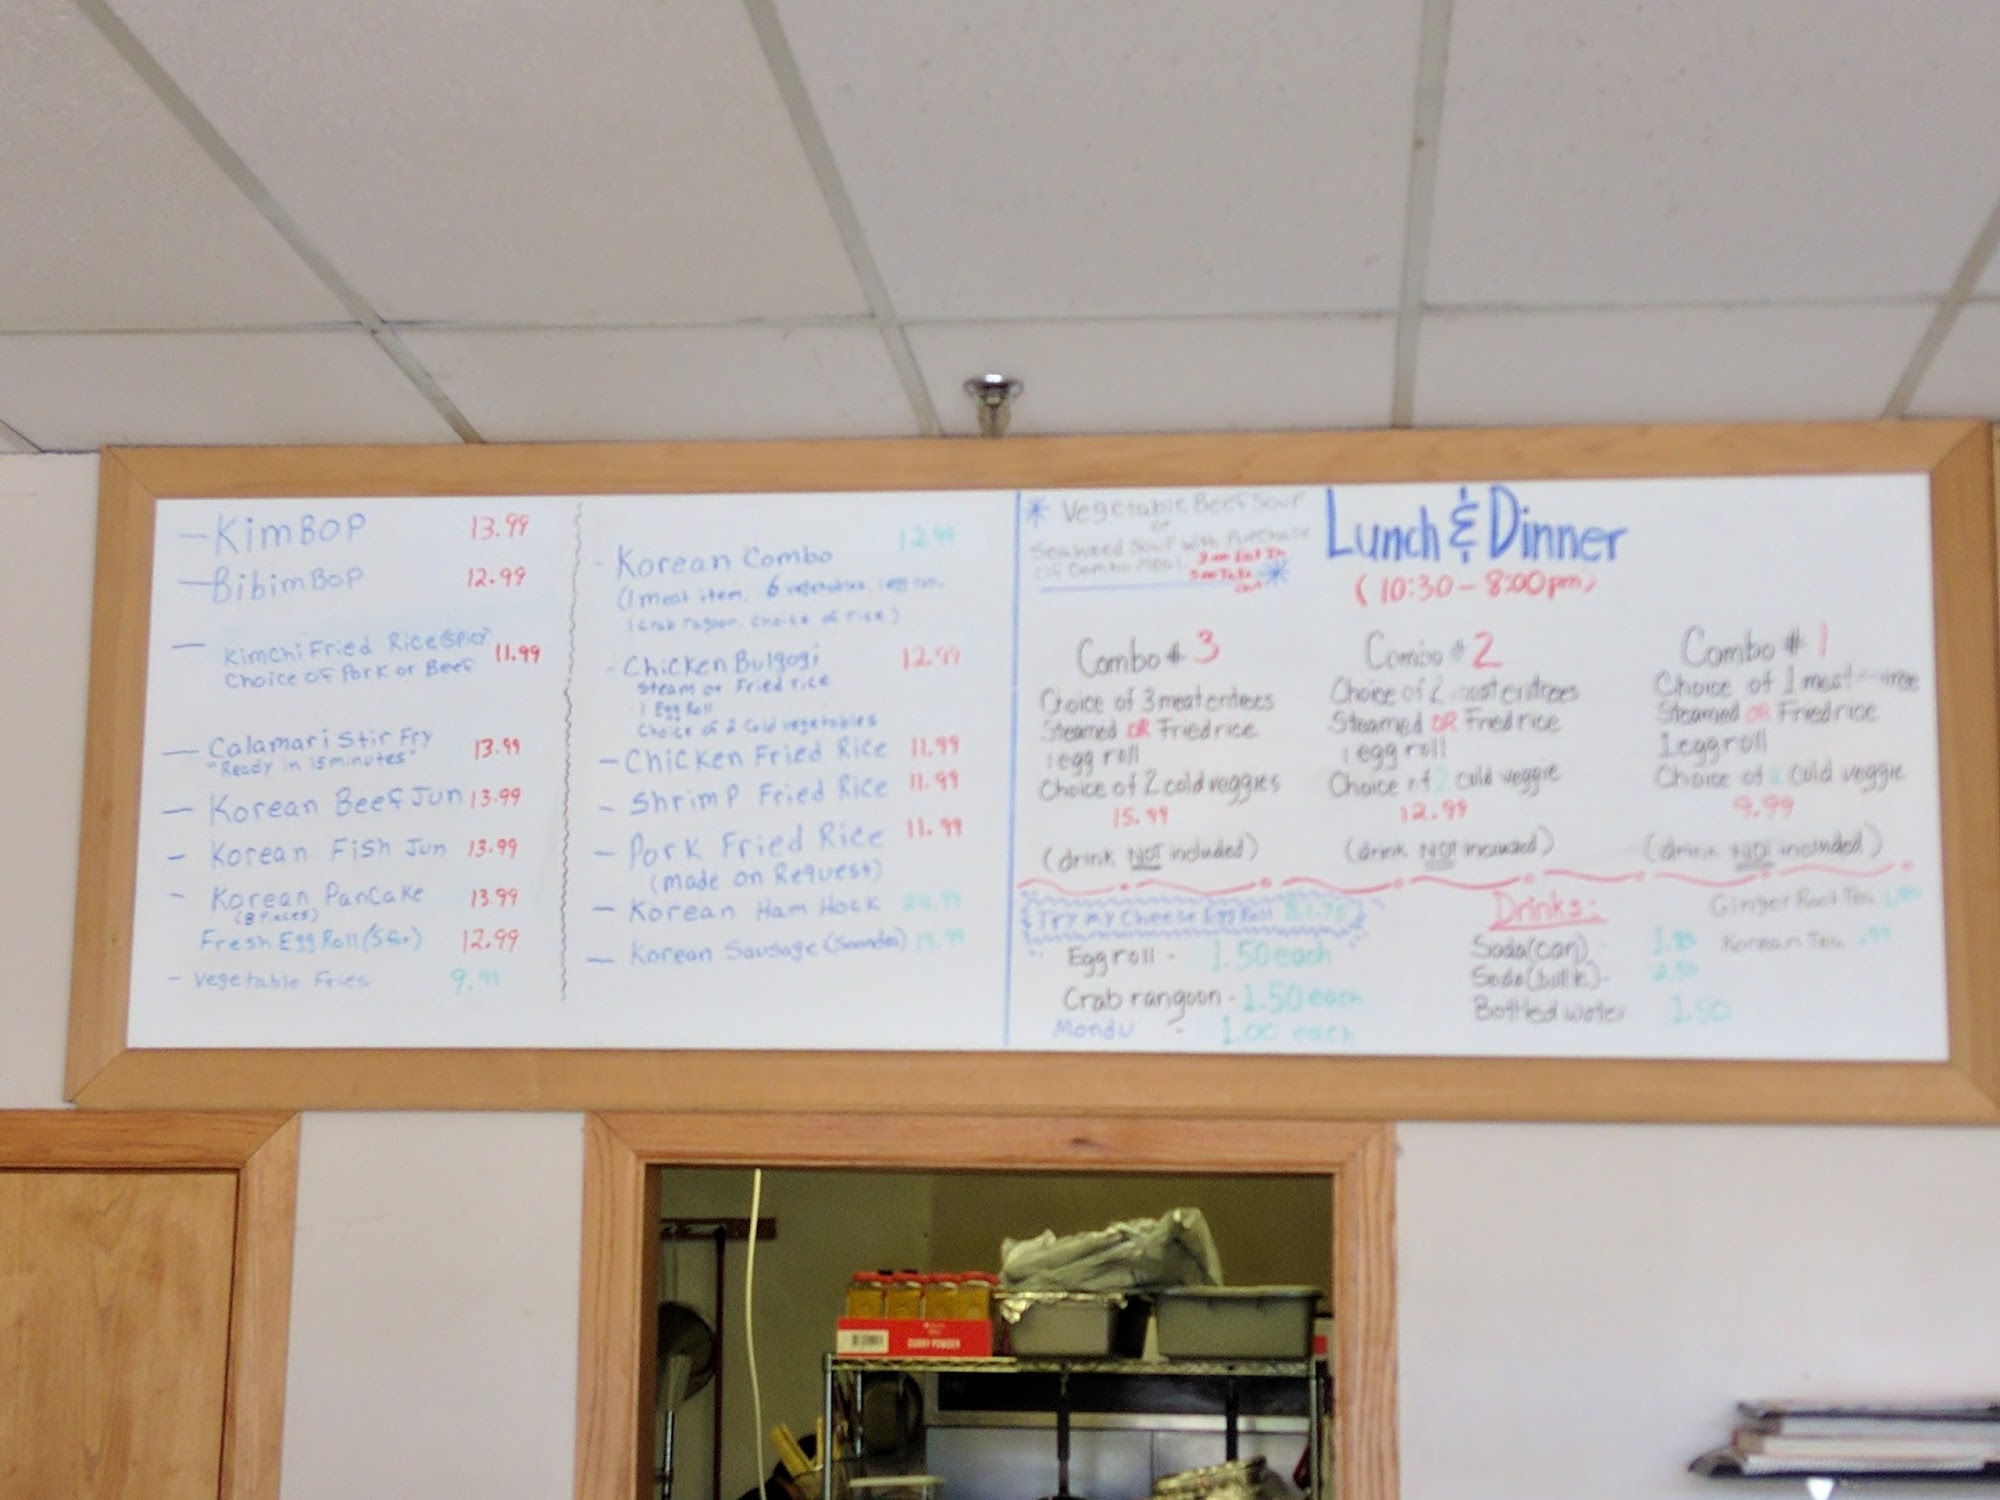 - KimBop 13.99
- BibimBop 12.99
- Kimchi Fried Rice (Spicy) 11.99
Choice of Pork or Beef
- Calamari Stir Fry 13.99
"Ready in 15 minutes"
- Korean Beef Jun 13.99
- Korean Fish Jun 13.99
- Korean Pancake 13.99
(8 Pieces)
Fresh Egg Roll (5 for) 12.99
- Vegetable Fries 9.99
- Korean Combo 12.99
(1 meat item, 6 vegetables, 1 egg roll,
1 crab ragoon, choice of rice)
- Chicken Bulgogi 12.99
Steam or Fried rice
1 Egg Roll
Choice of 2 Cold vegetables
- Chicken Fried Rice 11.99
- Shrimp Fried Rice 11.99
- Pork Fried Rice 11.99
(made on Request)
- Korean Ham Hock
- Korean Sausage
* Vegetable Beef Soup
or
Seaweed Soup with Purchase
Of Combo Meal
Lunch & Dinner
(10:30 - 8:00pm)
Combo # 3
Choice of 3 meat entrees
Steamed OR Fried rice
1 egg roll
Choice of 2 cold veggies
15.99
(drink NOT included)
Combo # 2
Choice of 2 meat entrees
Steamed OR Fried rice
1 egg roll
Choice of 2 cold veggie
12.99
(drink NOT included)
Combo # 1
Choice of 1 meat
Steamed OR Fried rice
1 egg roll
Choice of 2 cold veggie
9.99
(drink NOT included)
Try My Cheese Egg Roll
Egg roll - 1.50 each
Crab rangoon - 1.50 each
Mondu - 1.00 each
Drinks:
Soda (can) -
Soda (bottle) -
Bottled water 1.50
Ginger Root Tea
Korean Tea .99
CURRY POWDER